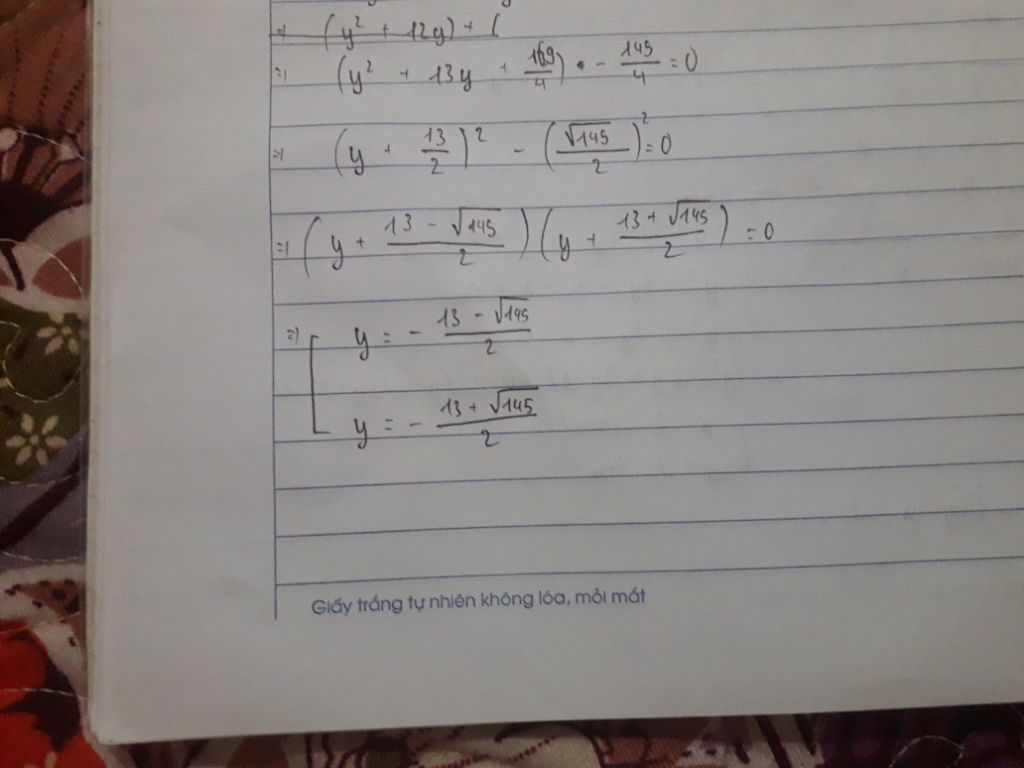 =) (y² + 12y) + (
=) (y² + 13y + 169/4) • - 145/4 = 0
=) (y + 13/2)² - (√145/2)² = 0
=) (y + (13 - √145)/2) (y + (13 + √145)/2) = 0
=) [ y = - (13 - √145)/2
y = - (13 + √145)/2
Giấy trắng tự nhiên không lóa, mỏi mắt